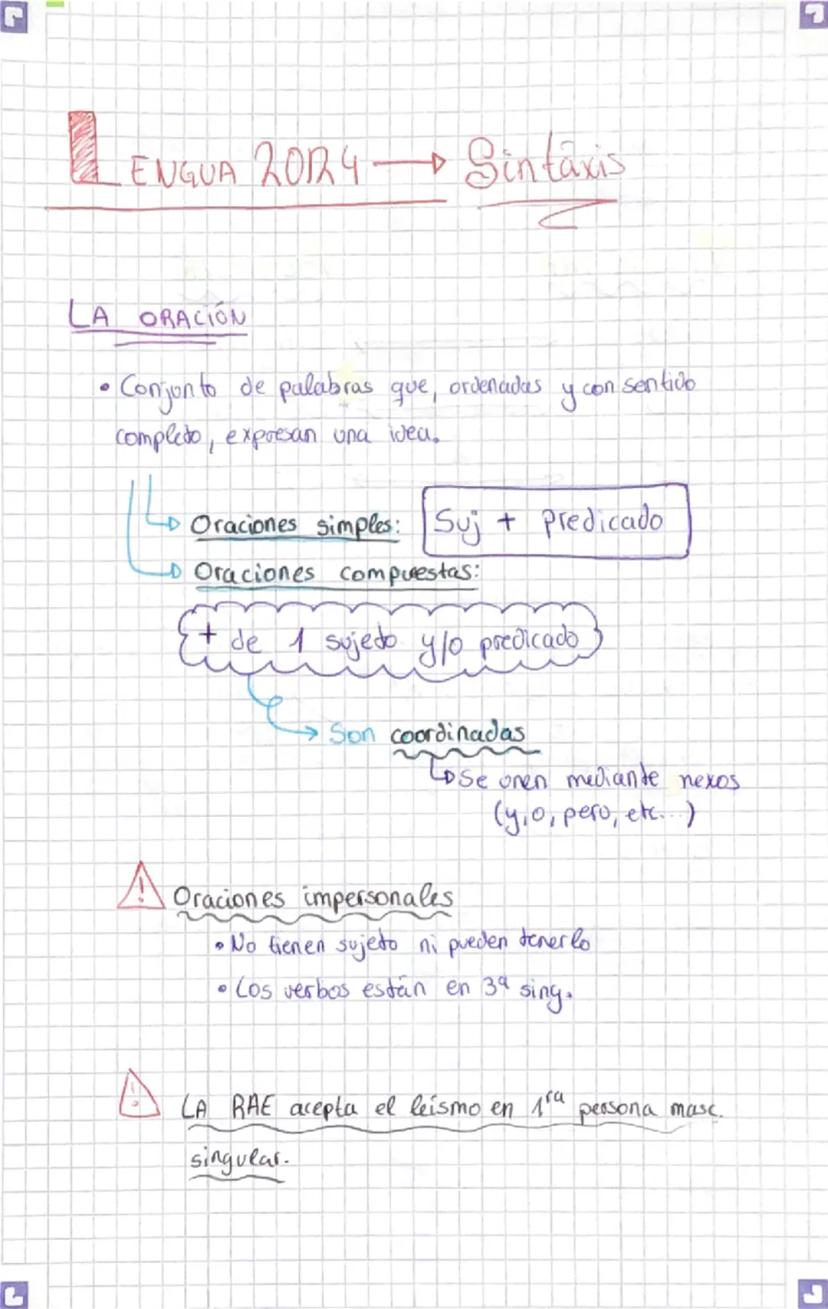 LENGUA 2024 → Sintáxis
LA ORACIÓN
• Conjunto de palabras que, ordenadas y con sentido
completo, expresan una idea.
→ Oraciones simples: Suj + predicado
→ Oraciones compuestas:
+ de 1 sujeto y/o predicado
→ Son coordinadas
→ Se unen mediante nexos
(y, o, pero, etc...)
! Oraciones impersonales
• No tienen sujeto ni pueden tenerlo
• Los verbos están en 3ª sing.
! LA RAE acepta el leísmo en 1ra persona masc.
singular.